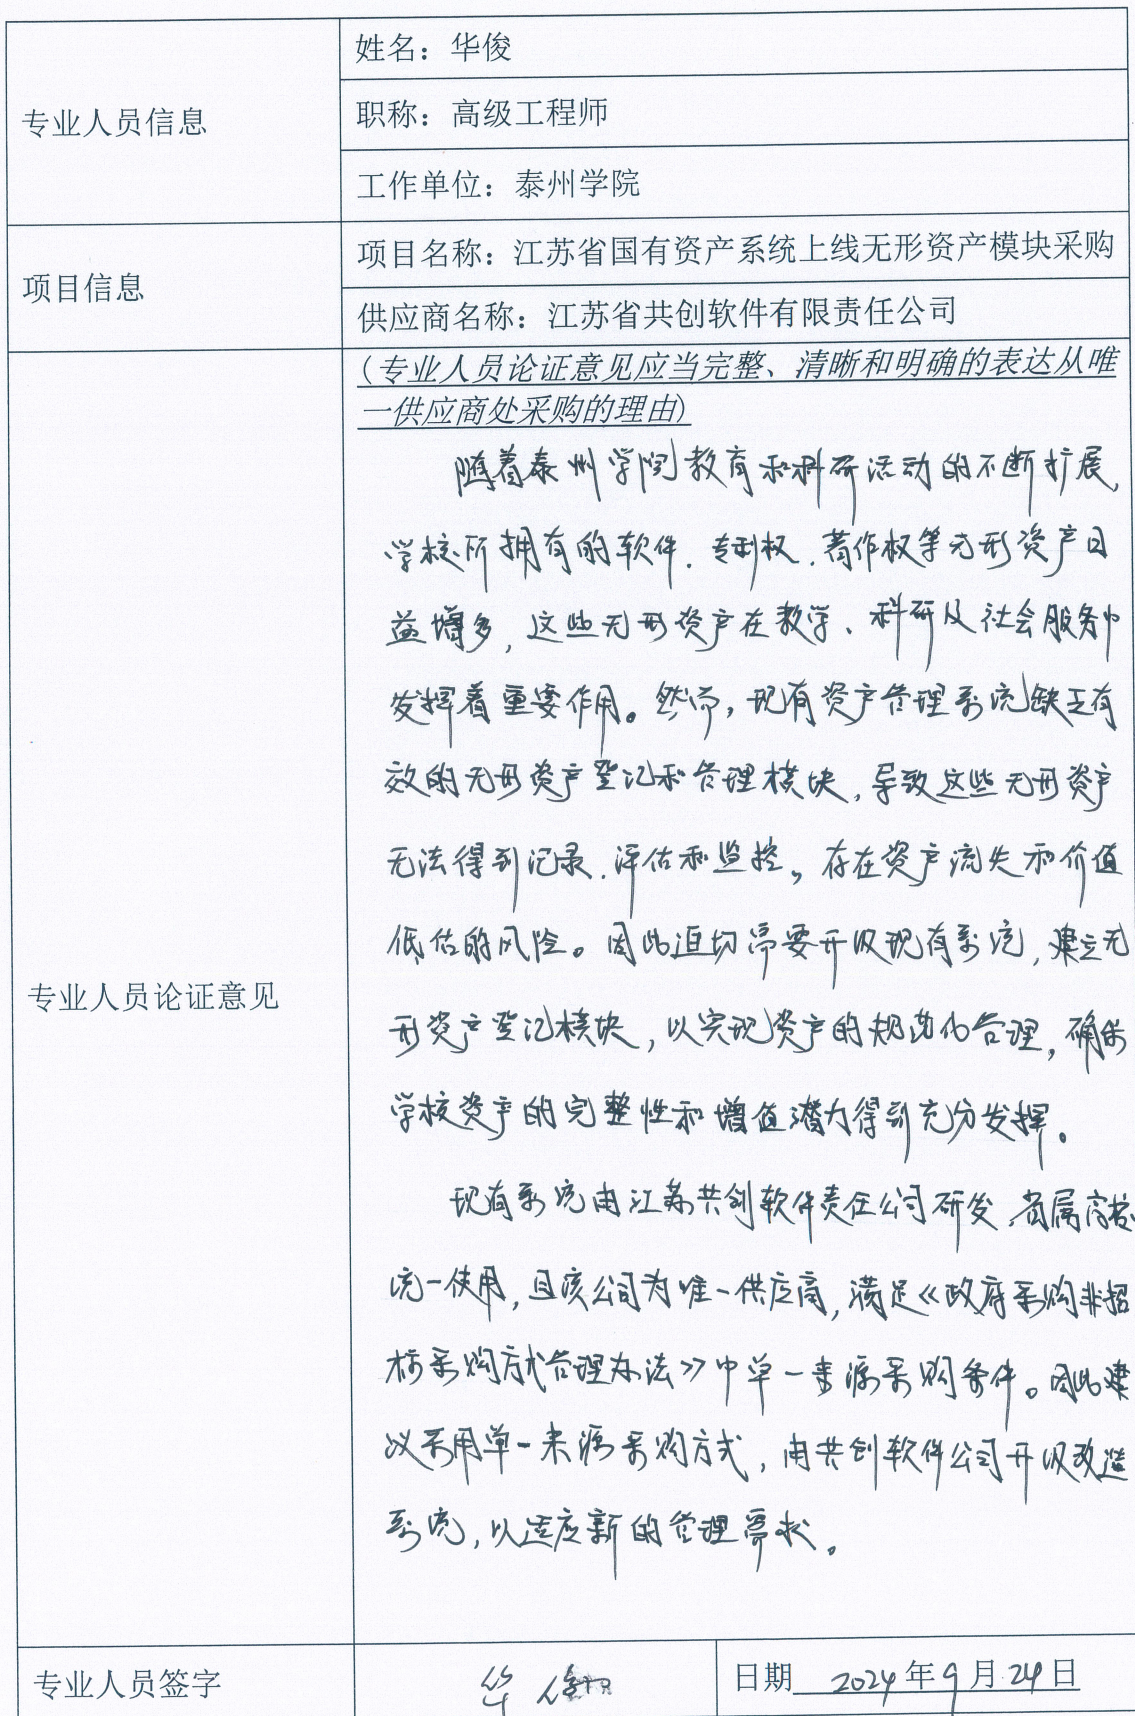 专业人员信息
姓名：华俊
职称：高级工程师
工作单位：泰州学院
项目信息
项目名称：江苏省国有资产系统上线无形资产模块采购
供应商名称：江苏省共创软件有限责任公司
专业人员论证意见
(专业人员论证意见应当完整、清晰和明确的表达从唯
一供应商处采购的理由)
随着泰州学院教育和科研活动的不断扩展，
学校所拥有的软件、专利权、著作权等无形资产日
益增多，这些无形资产在教学、科研及社会服务中
发挥着重要作用。然而，现有资产管理系统缺乏有
效的无形资产登记和管理模块，导致这些无形资产
无法得到记录、评估和监控，存在资产流失和价值
低估的风险。因此迫切需要升级现有系统，建立无
形资产登记模块，以实现资产的规范化管理，确保
学校资产的完整性和增值潜力得到充分发挥。
现有系统由江苏共创软件责任公司研发，省属高校
统一使用，且该公司为唯一供应商，满足《政府采购非招
标采购方式管理办法》中单一来源采购条件。因此建
议采用单一来源采购方式，由共创软件公司升级改造
系统，以适应新的管理需求。
专业人员签字
华俊
日期 2024年9月24日